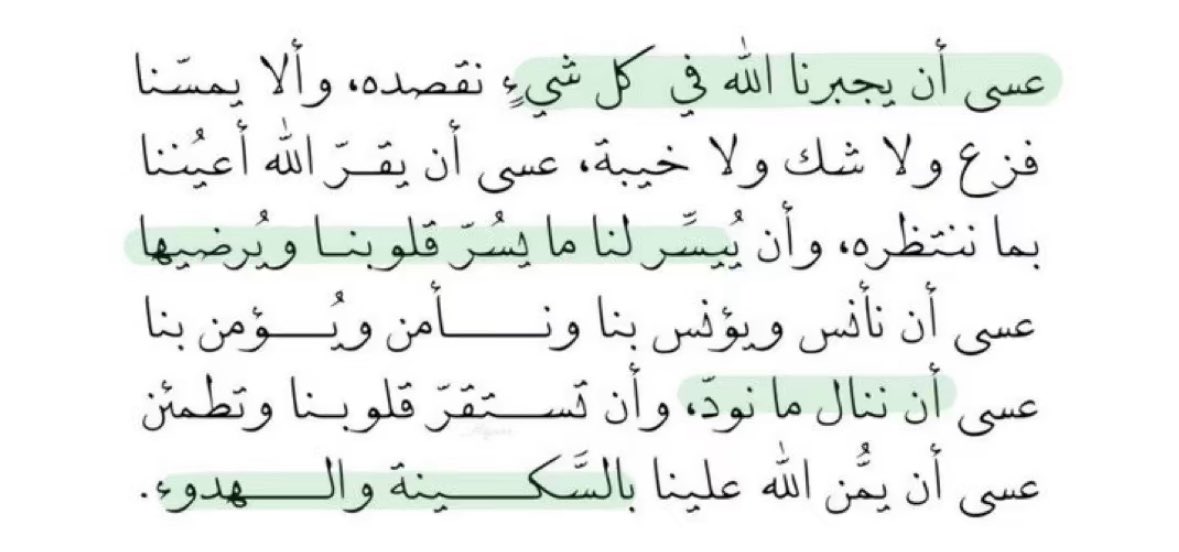 عسى أن يجبرنا الله في كل شيءٍ نقصده، وألا يمسّنا
فزع ولا شك ولا خيبة، عسى أن يقــرّ الله أعيُننا
بما ننتظره، وأن يُيسَّر لنا ما يسُرّ قلوبنــا ويُرضيها
عسى أن نأنس ويؤنس بنا ونـــــأمن ويُـــــؤمن بنا
عسى أن ننال ما نودّ، وأن تســـتقرّ قلوبــنا وتطمئن
عسى أن يمُّن الله علينا بالسَّكـــــينة والـــــهدوء.